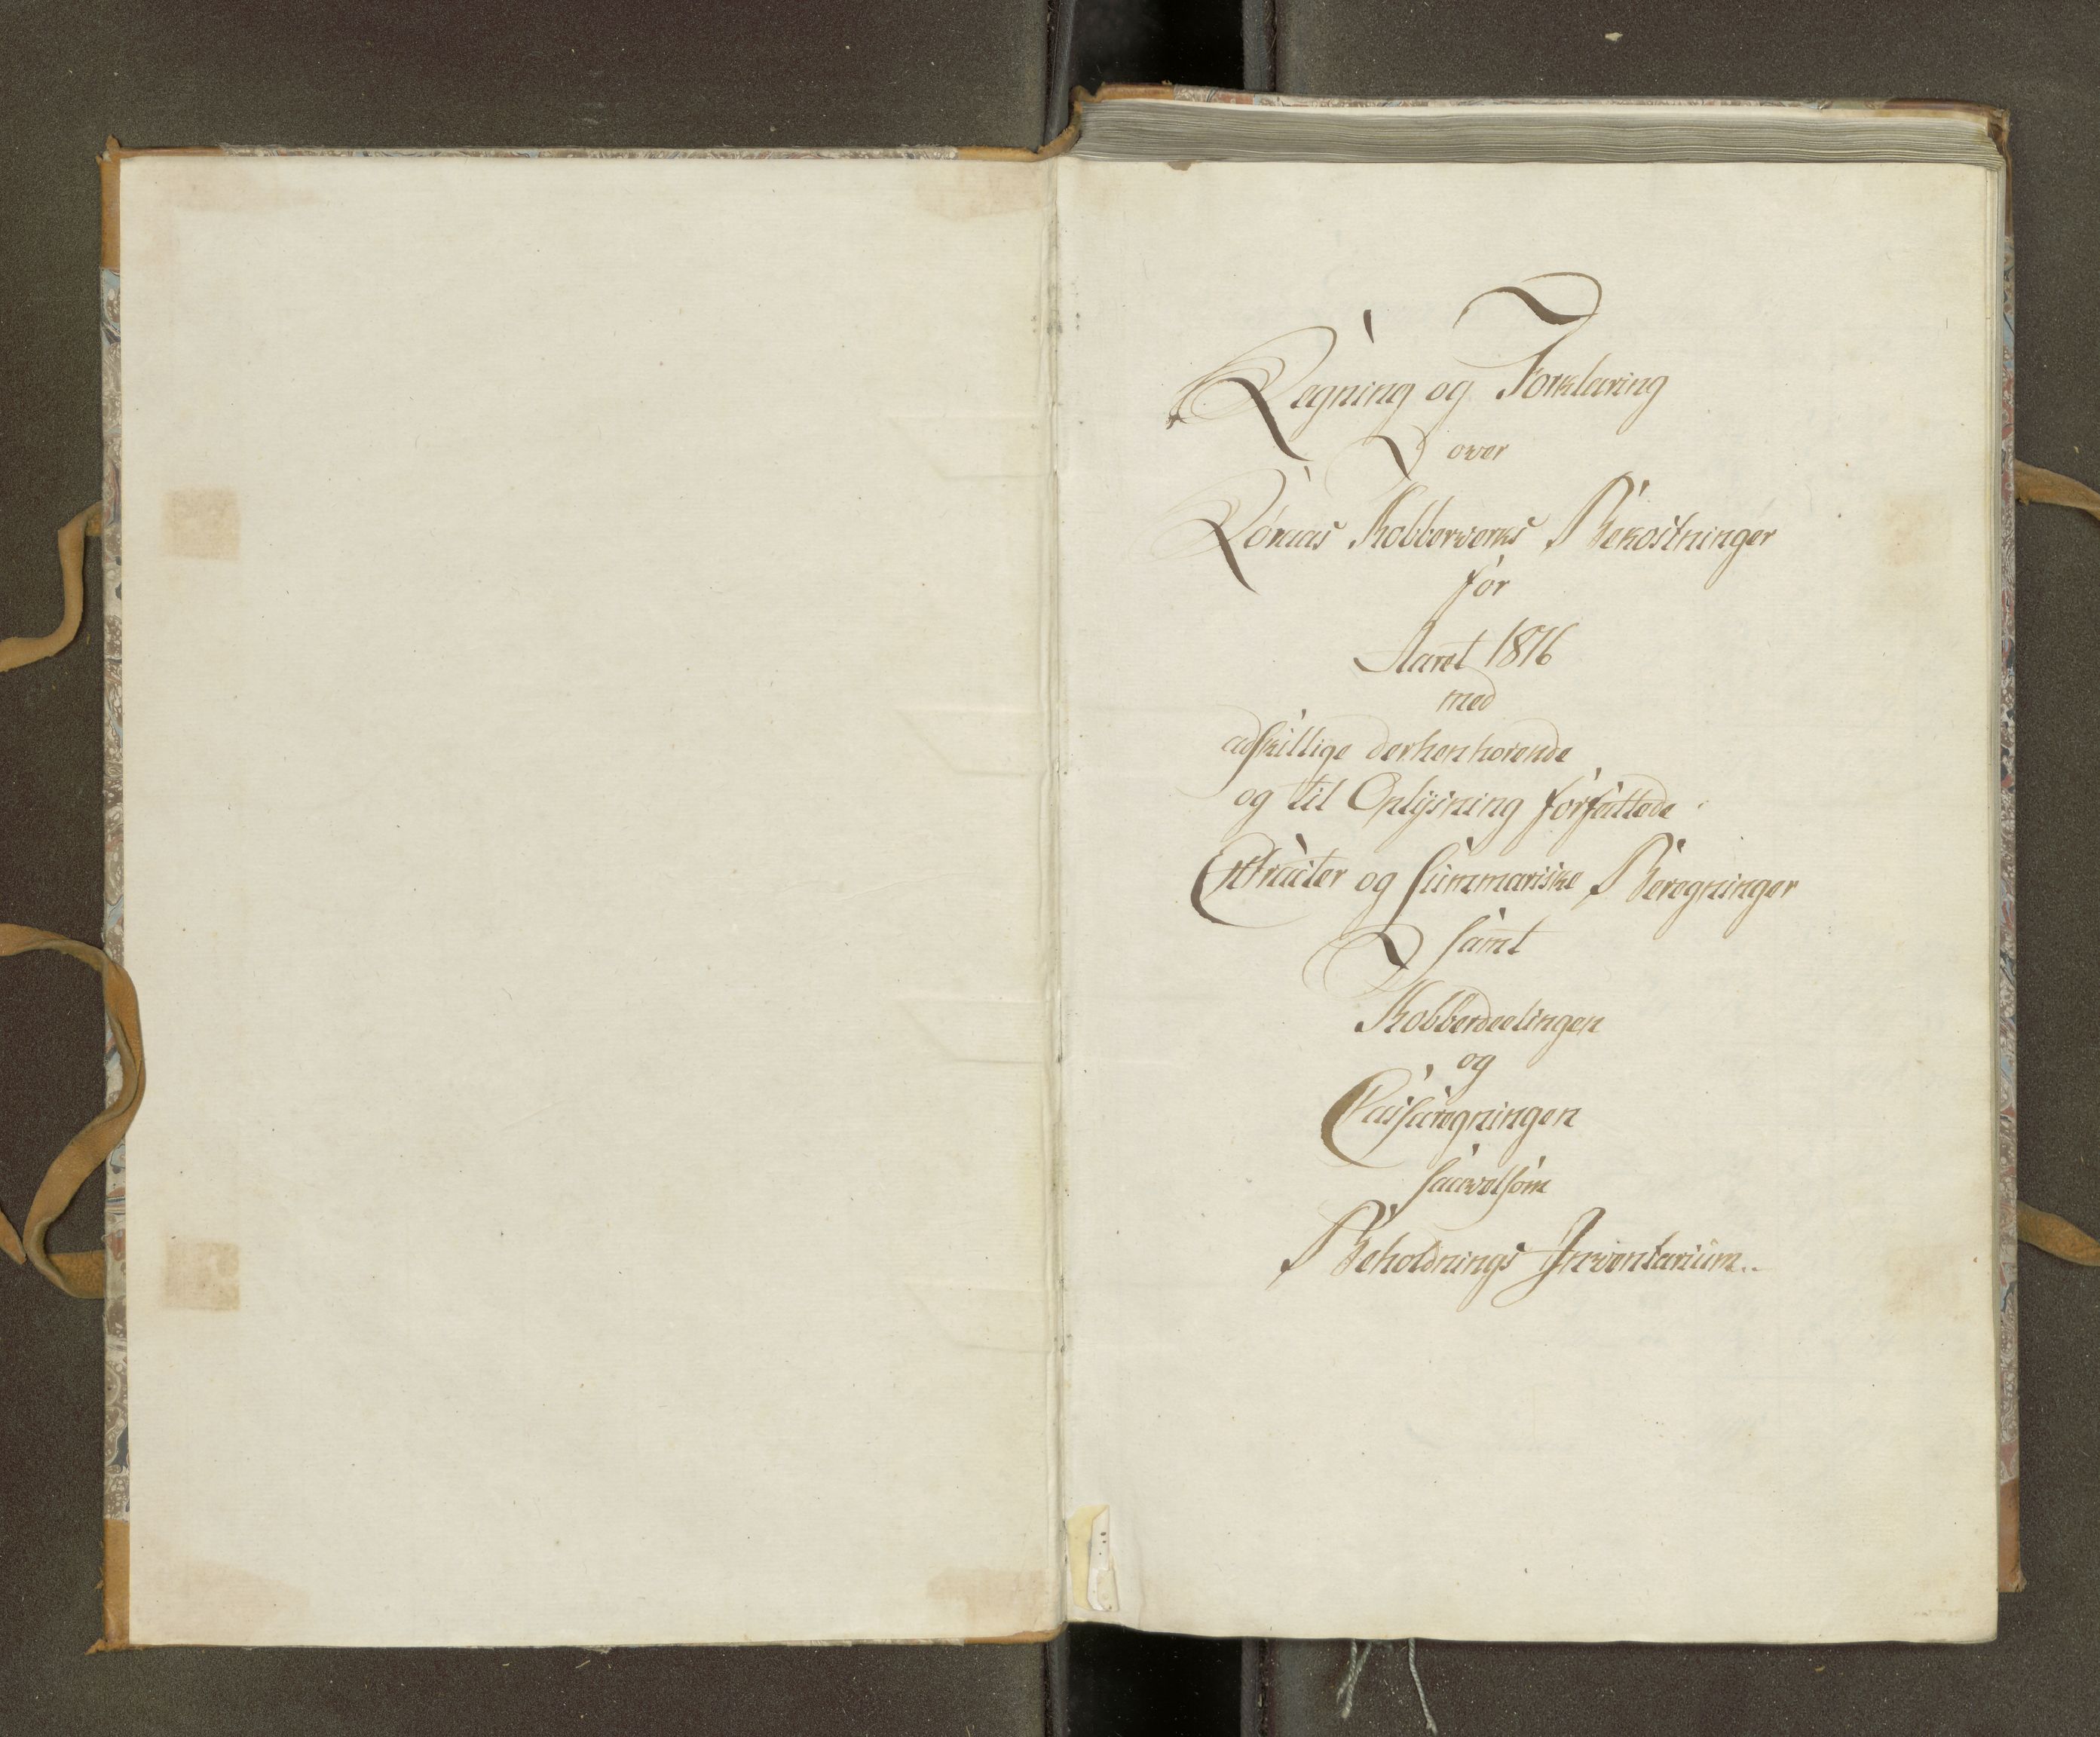 Regning og Forklaring
over
Röraas Kobberverks Bekostninger
for
Aaret 1816
med
adskillige derhenhørende
og til Oplysning forfattede
Extracter og summariske Beregninger
samt
Kobberdeelingen
og
Cassaregningen
saavelsom
Beholdnings Inventarium..